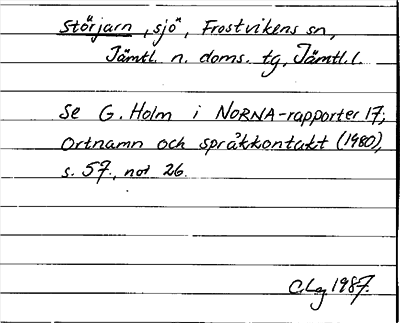 Störjarn, "sjö", Frostvikens sn,
Jämtl. n. doms. tg, Jämtl. l.
Se G. Holm i NORNA-rapporter 17;
Ortnamn och språkkontakt (1980),
s. 57, not 26.
C.Lg 1987.